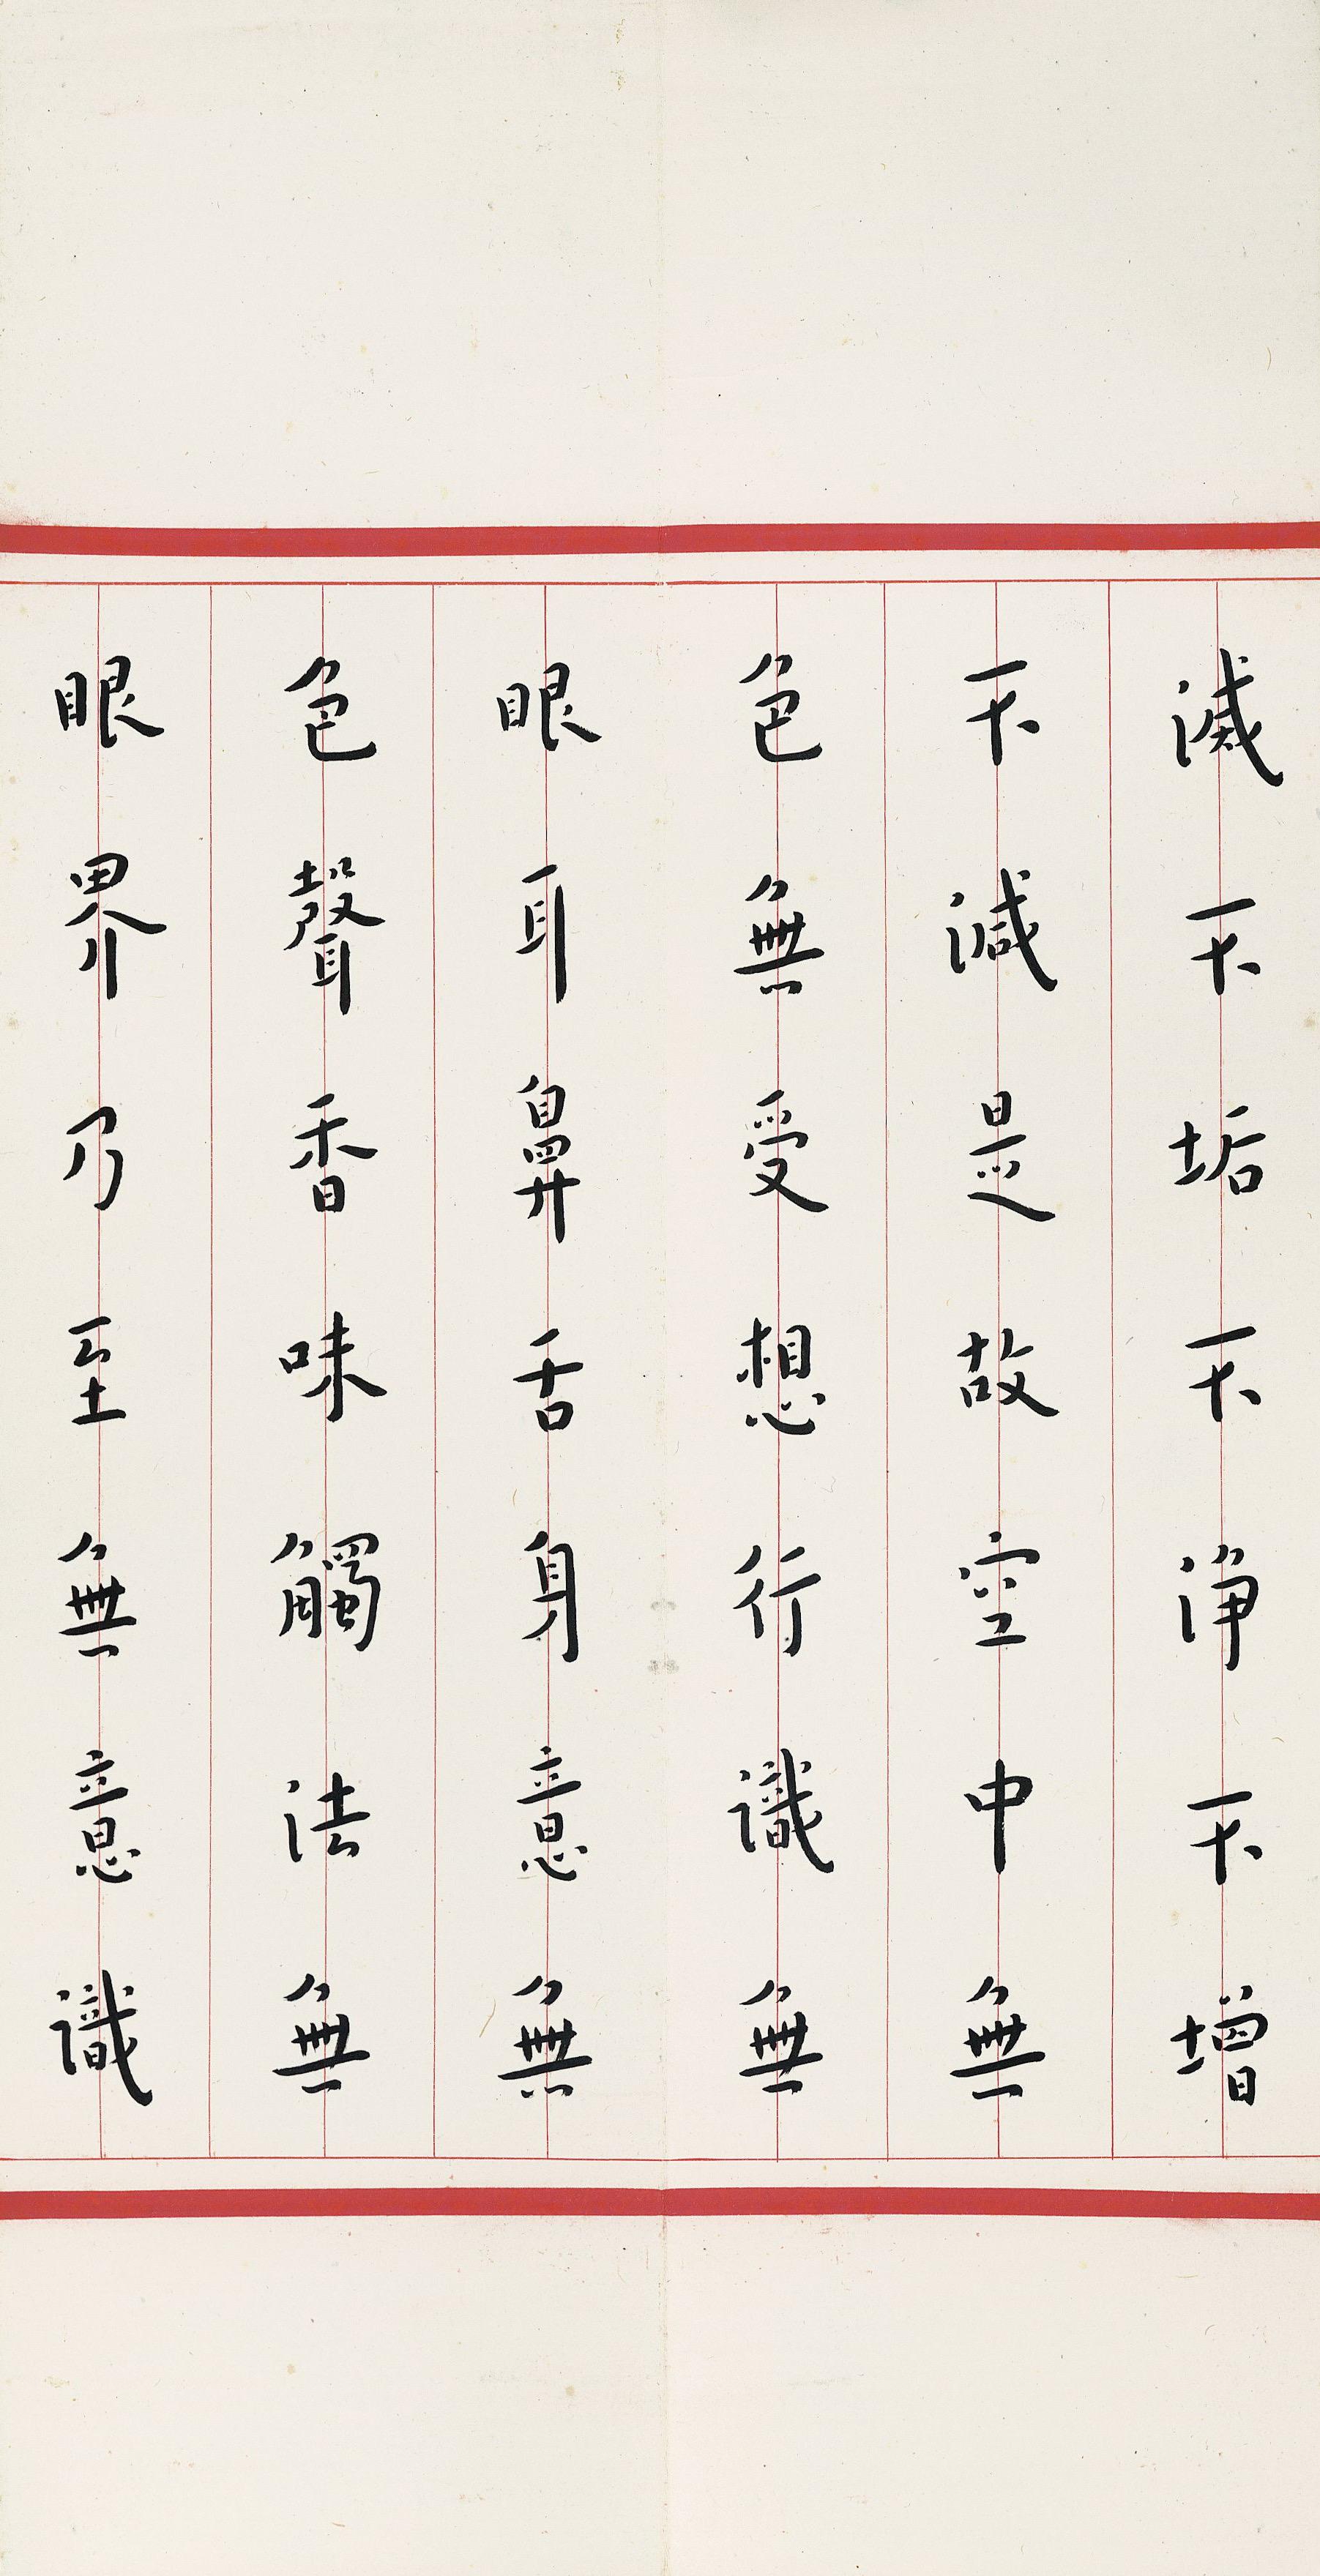 滅不垢不淨不增
不減是故空中無
色無受想行識無
眼耳鼻舌身意無
色聲香味觸法無
眼界乃至無意識